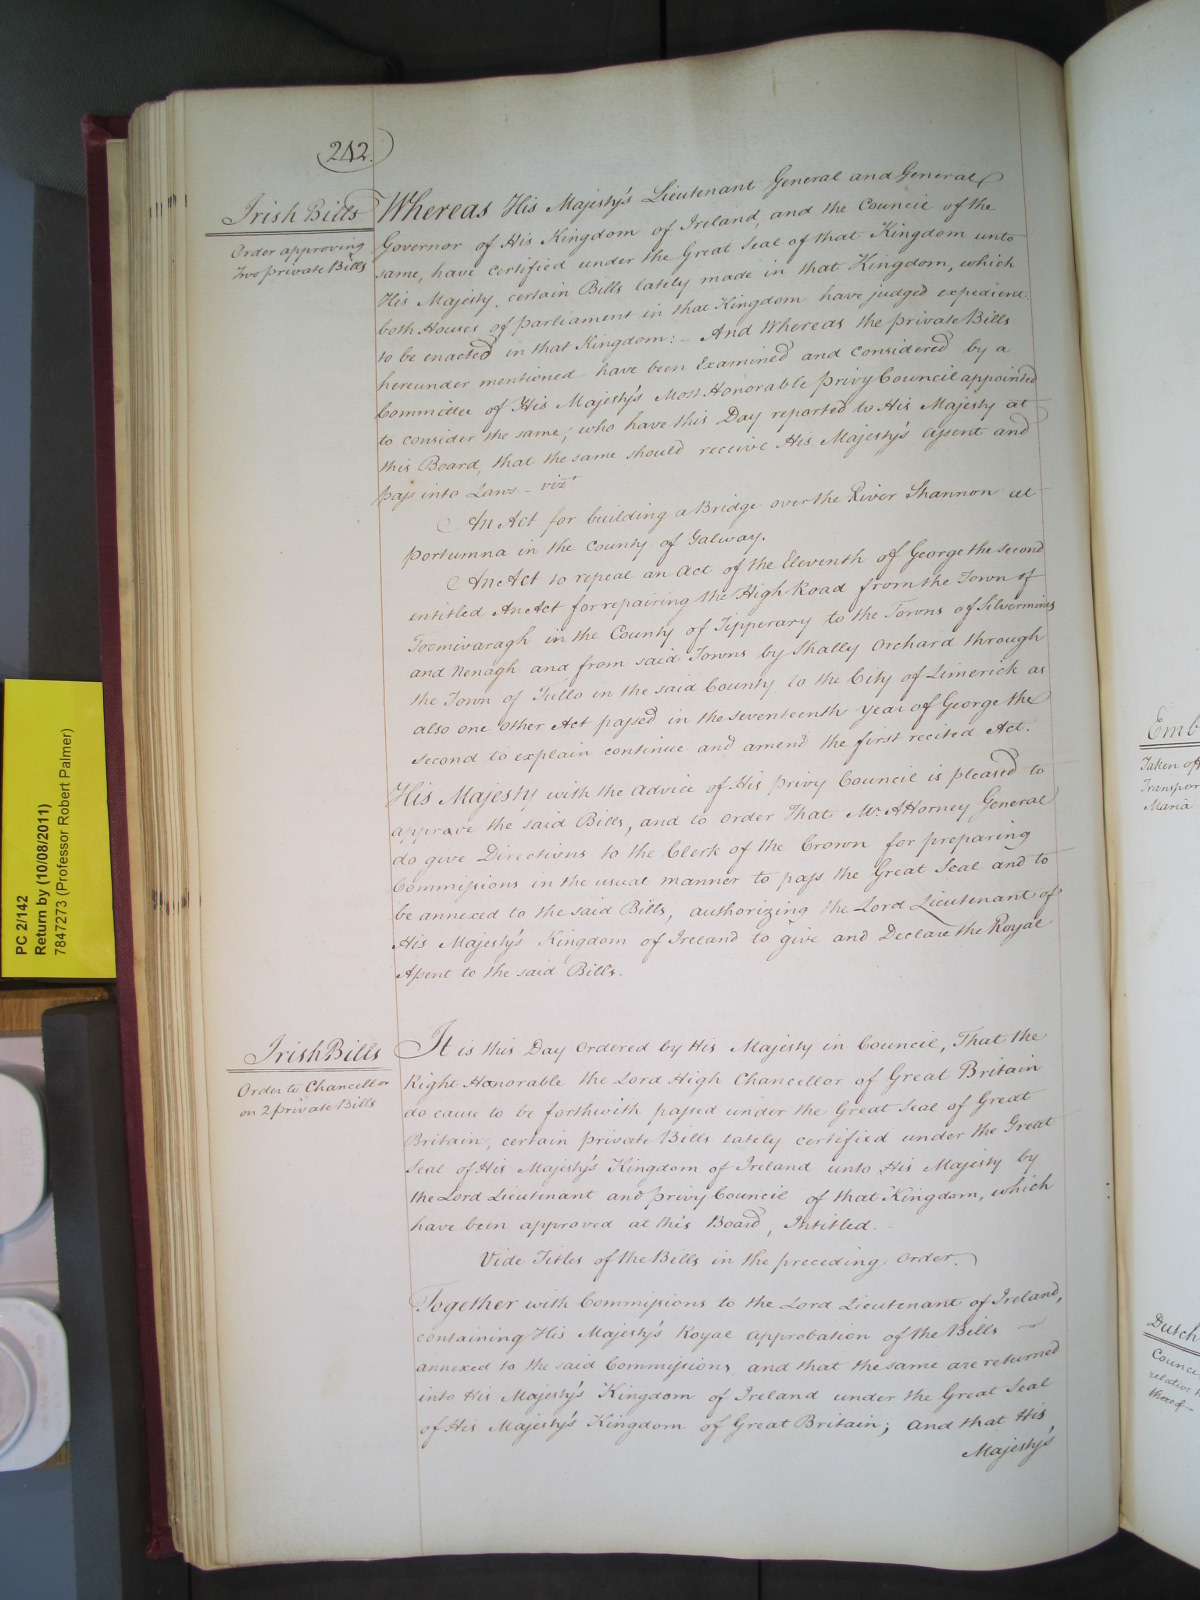 242.
Irish Bills
Order approving
Two private Bills
Whereas His Majesty's Lieutenant General and General
Governor of His Kingdom of Ireland, and the Council of the
same, have certified under the Great Seal of that Kingdom unto
His Majesty, certain Bills lately made in that Kingdom, which
both Houses of Parliament in that Kingdom have judged expedient
to be enacted in that Kingdom: - And Whereas the private Bills
hereunder mentioned have been Examined and Considered by a
Committee of His Majesty's Most Honorable Privy Council appointed
to consider the same, who have this Day reported to His Majesty at
this Board, that the same should receive His Majesty's Assent and
pass into Laws - vizt
An Act for building a Bridge over the River Shannon at
Portumna in the County of Galway.
An Act to repeal an Act of the Eleventh of George the Second
entitled An Act for repairing the High Road from the Town of
Toomivaragh in the County of Tipperary to the Towns of Silvermines
and Nenagh and from said Towns by Shally Orchard through
the Town of Tullo in the said County to the City of Limerick as
also one other Act passed in the seventeenth Year of George the
second to explain continue and amend the first recited Act.
His Majesty with the advice of His Privy Council is pleased to
approve the said Bills, and to order That Mr. Attorney General
do give Directions to the Clerk of the Crown for preparing
Commissions in the usual manner to pass the Great Seal and to
be annexed to the said Bills, authorizing the Lord Lieutenant of
His Majesty's Kingdom of Ireland to give and Declare the Royal
Assent to the said Bills.
Irish Bills
Order to Chancellor
on 2 private Bills
It is this Day Ordered by His Majesty in Council, That the
Right Honorable the Lord High Chancellor of Great Britain
do cause to be forthwith passed under the Great Seal of Great
Britain, certain private Bills lately certified under the Great
Seal of His Majesty's Kingdom of Ireland unto His Majesty by
the Lord Lieutenant and Privy Council of that Kingdom, which
have been approved at this Board, Intitled.
Vide Titles of the Bills in the preceding Order.
Together with Commissions to the Lord Lieutenant of Ireland,
containing His Majesty's Royal approbation of the Bills
annexed to the said Commissions, and that the same are returned
into His Majesty's Kingdom of Ireland under the Great Seal
of His Majesty's Kingdom of Great Britain; and that His
Majesty's
PC 2/142
Return by (10/08/2011)
7847273 (Professor Robert Palmer)
Emb
Taken off
Transpor
Maria
Dutch
Counci
relative
thereof